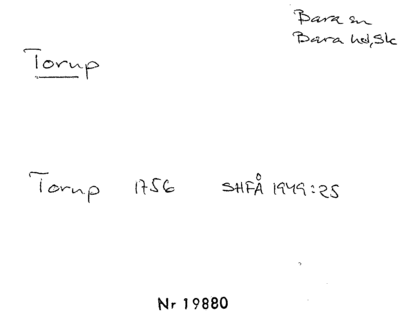 Bara sn
Bara hd, Sk
Torup
Torup 1756 SHFÅ 1949:25
Nr 19880